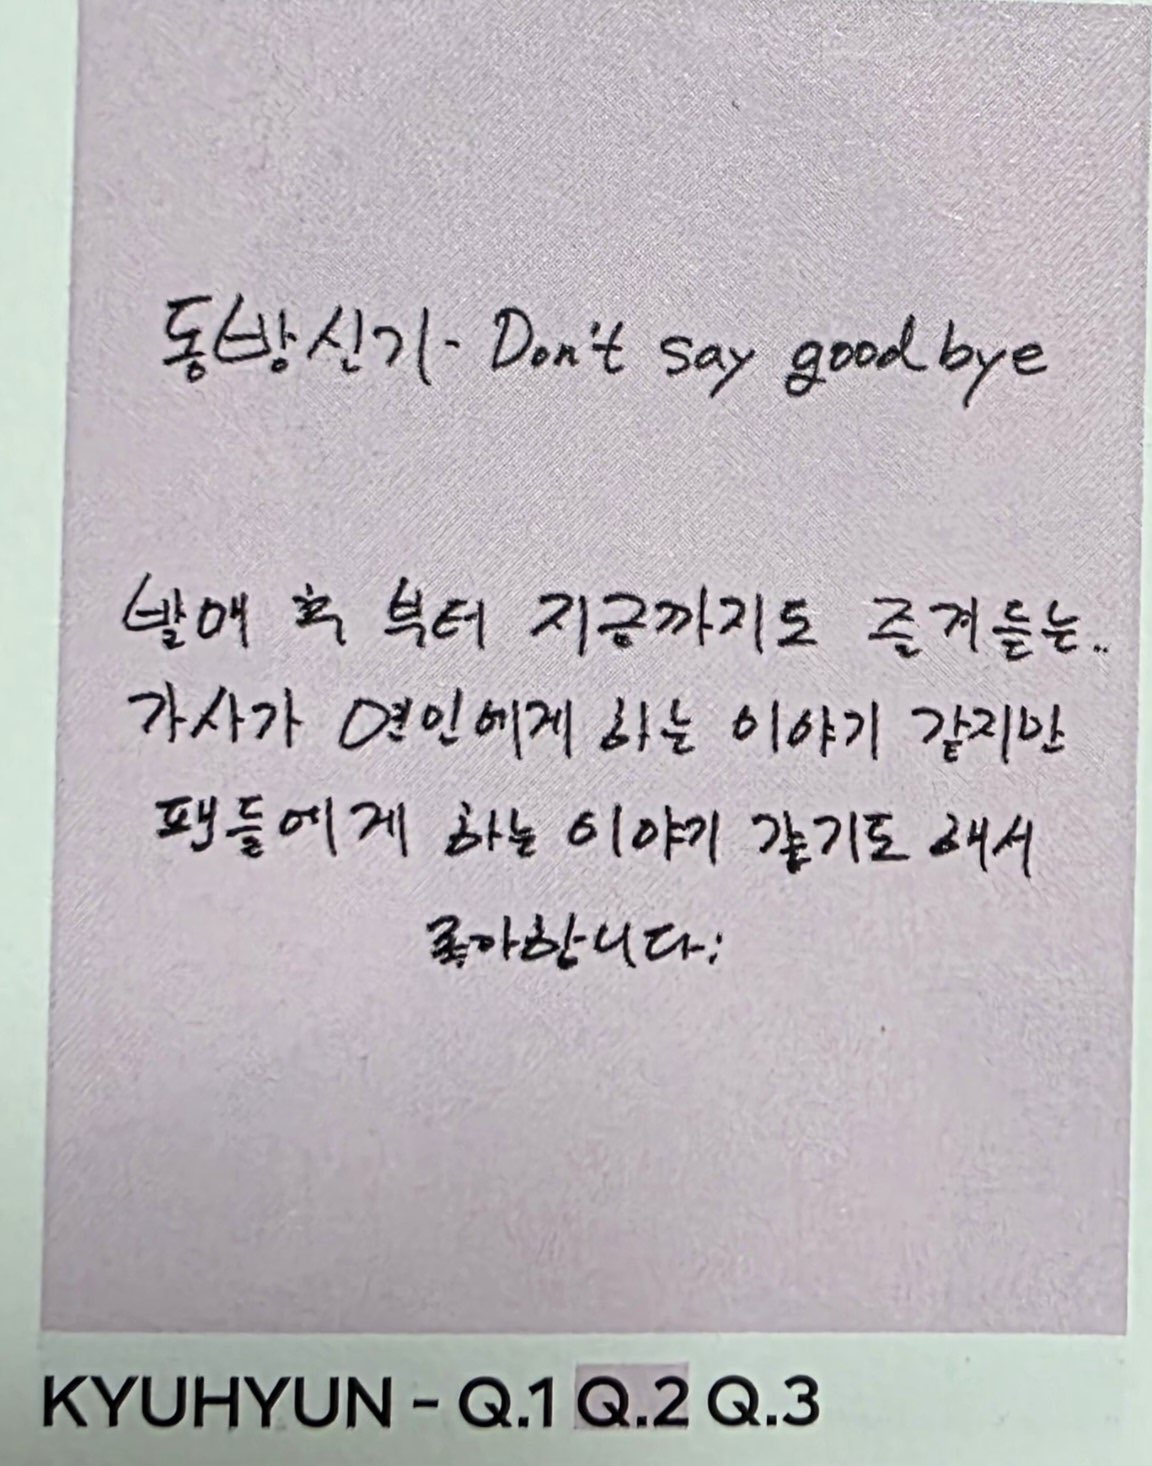 동방신기 - Don't say good bye
발매 후 부터 지금까지도 즐겨듣는..
가사가 연인에게 하는 이야기 같지만
팬들에게 하는 이야기 같기도 해서
좋아합니다;
KYUHYUN - Q.1 Q.2 Q.3